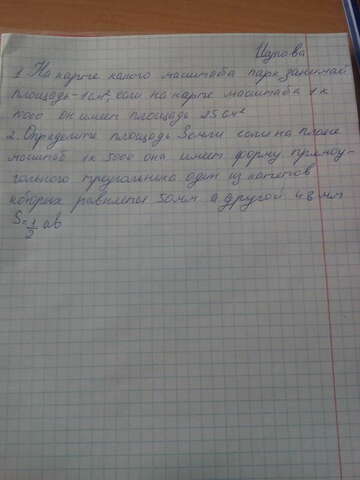 1. На карте какого масштаба парк занимает
площадь - 1 см², если на карте масштаба 1 к
он имеет площадь 25 см²
2. Определите площадь Земли если на плане
масштаб 1 к 5000 она имеет форму прямоу-
гольного треугольника один из катетов
которых равняется 50 мм а другой 48 мм
S = 1/2 ab